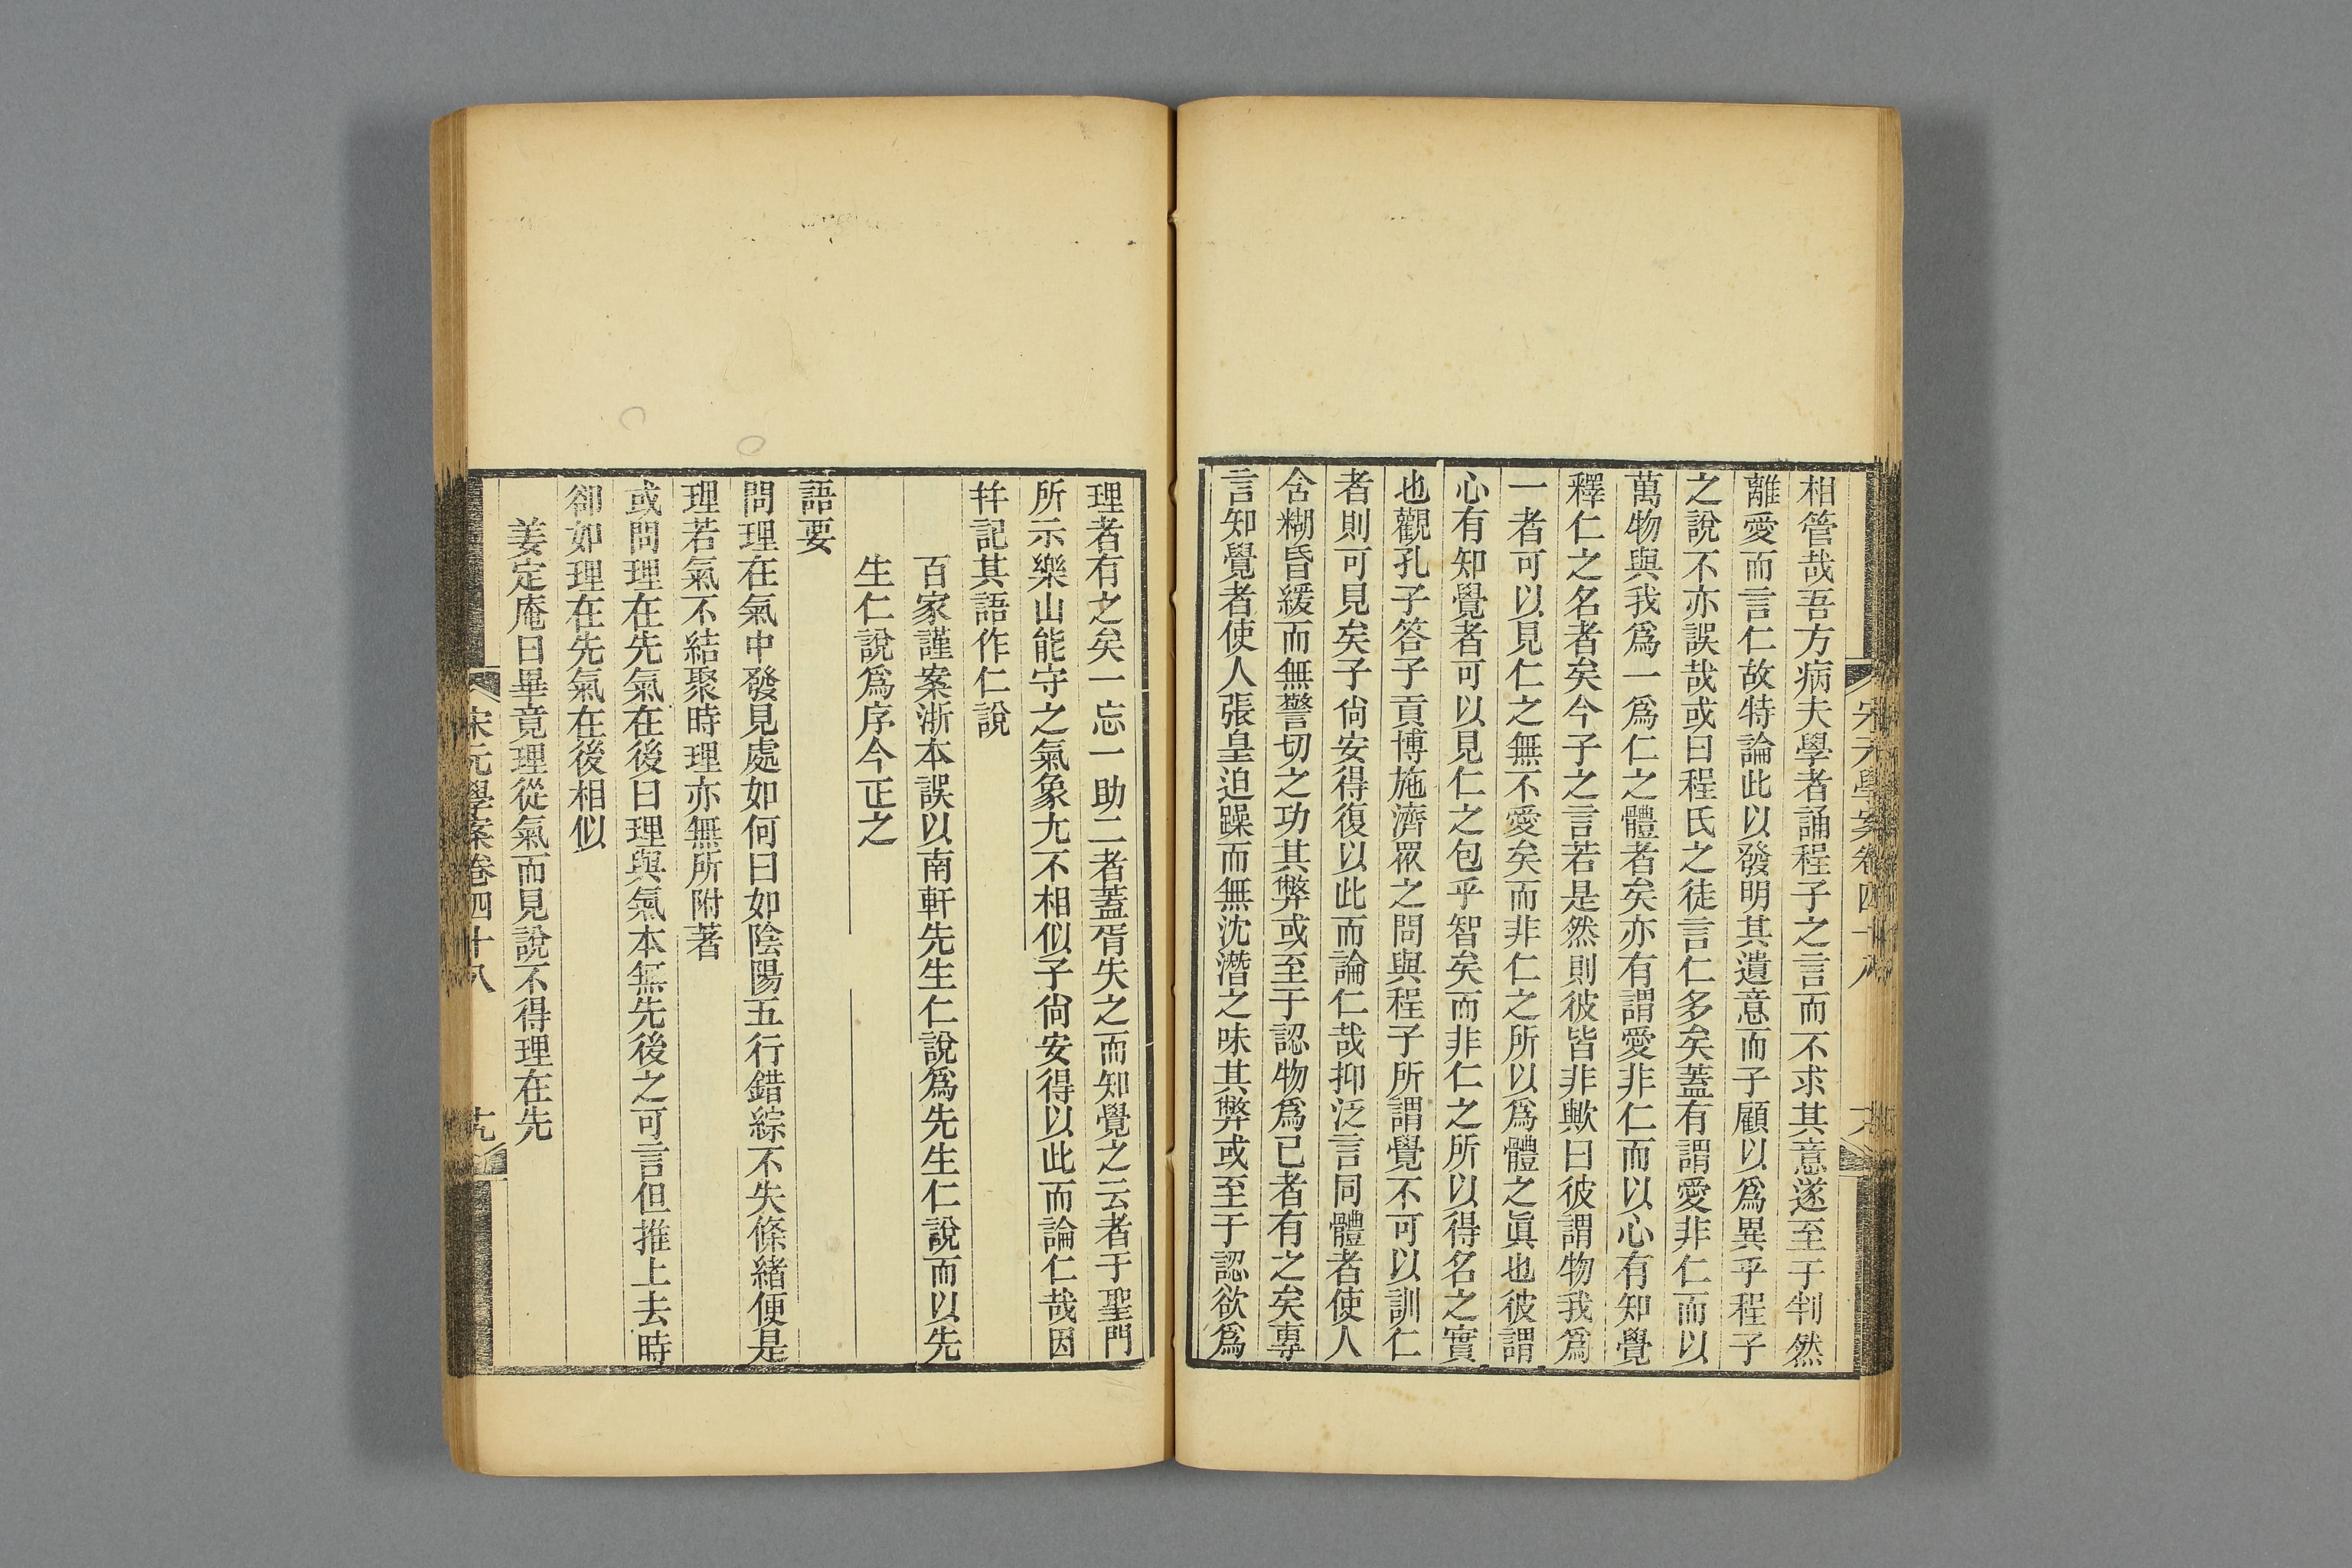 相管哉吾方病夫學者誦程子之言而不求其意遂至于判然
離愛而言仁故特論此以發明其遺意而子顧以爲異乎程子
之說不亦誤哉或曰程氏之徒言仁多矣蓋有謂愛非仁而以
萬物與我爲一爲仁之體者矣亦有謂愛非仁而以心有知覺
釋仁之名者矣今子之言若是然則彼皆非歟曰彼謂物我爲
一者可以見仁之無不愛矣而非仁之所以爲體之眞也彼謂
心有知覺者可以見仁之包乎智矣而非仁之所以得名之實
也觀孔子答子貢博施濟眾之問與程子所謂覺不可以訓仁
者則可見矣子尙安得復以此而論仁哉抑泛言同體者使人
含糊昏緩而無警切之功其弊或至于認物爲己者有之矣專
言知覺者使人張皇迫躁而無沈潛之味其弊或至于認欲爲
宋元學案卷四十八
理者有之矣一忘一助二者蓋胥失之而知覺之云者于聖門
所示樂山能守之氣象尤不相似子尙安得以此而論仁哉因
幷記其語作仁說
百家謹案浙本誤以南軒先生仁說爲先生仁說而以先
生仁說爲序今正之
語要
問理在氣中發見處如何曰如陰陽五行錯綜不失條緒便是
理若氣不結聚時理亦無所附著
或問理在先氣在後曰理與氣本無先後之可言但推上去時
卻如理在先氣在後相似
姜定庵曰畢竟理從氣而見說不得理在先
宋元學案卷四十八